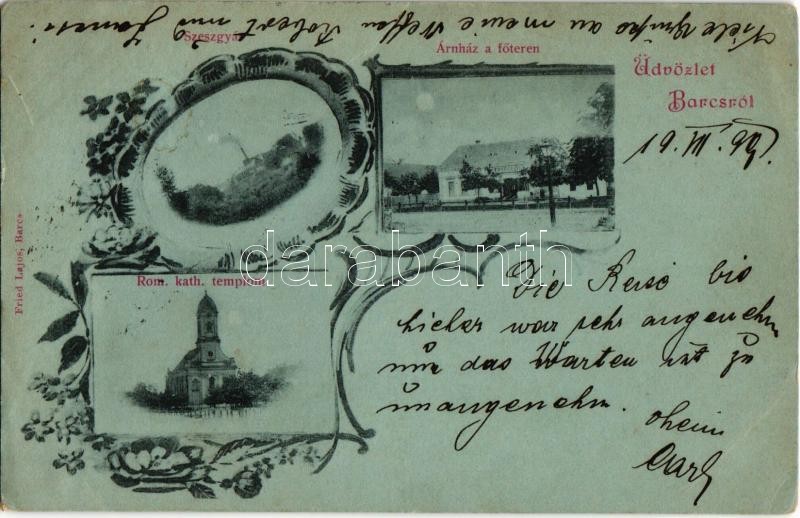 Viele Grüße an meine Neffen Robert und
Szeszgyár
Árnház a főteren
Üdvözlet
Barcsról
19. VII. 99.
Fried Lajos, Barcs
darabanth
Rom. kath. templom
Die Reise bis
hieher war sehr angenehm
nur das Warten ist zu
unangenehm.
Carl